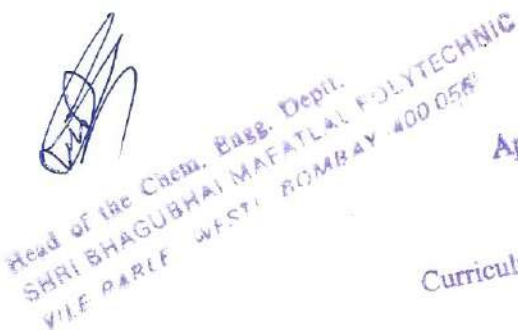 Head of the Chem. Engg. Deptt.
SHRI BHAGUBHAI MAFATLAL POLYTECHNIC
VILE PARLE WEST BOMBAY 400 056
Ap
Curricul